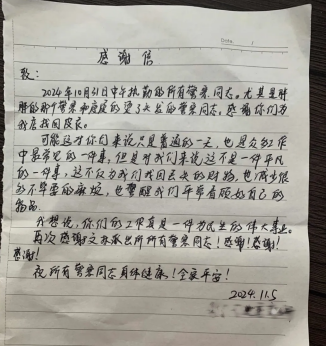 感谢信
致:
2024年10月31日中午执勤的所有警察同志。尤其是胖
胖的那个警察和瘦瘦的烫了头发的警察同志。感谢你们为
我店找回皮衣。
可能这对你们来说只是普通的一天,也是众多工作
中最常见的一件事,但是对我们来说这不是一件平凡
的一件事,这不仅为我们找回丢失的财物,也减少很
多不必要的麻烦,也警醒我们平常看顾好自己的
物品。
我想说,你们的工作真是一件为民生的伟大事业。
再次感谢文林派出所所有警察同志!感谢!感谢!
感谢!
祝所有警察同志身体健康!全家平安!
2024.11.5